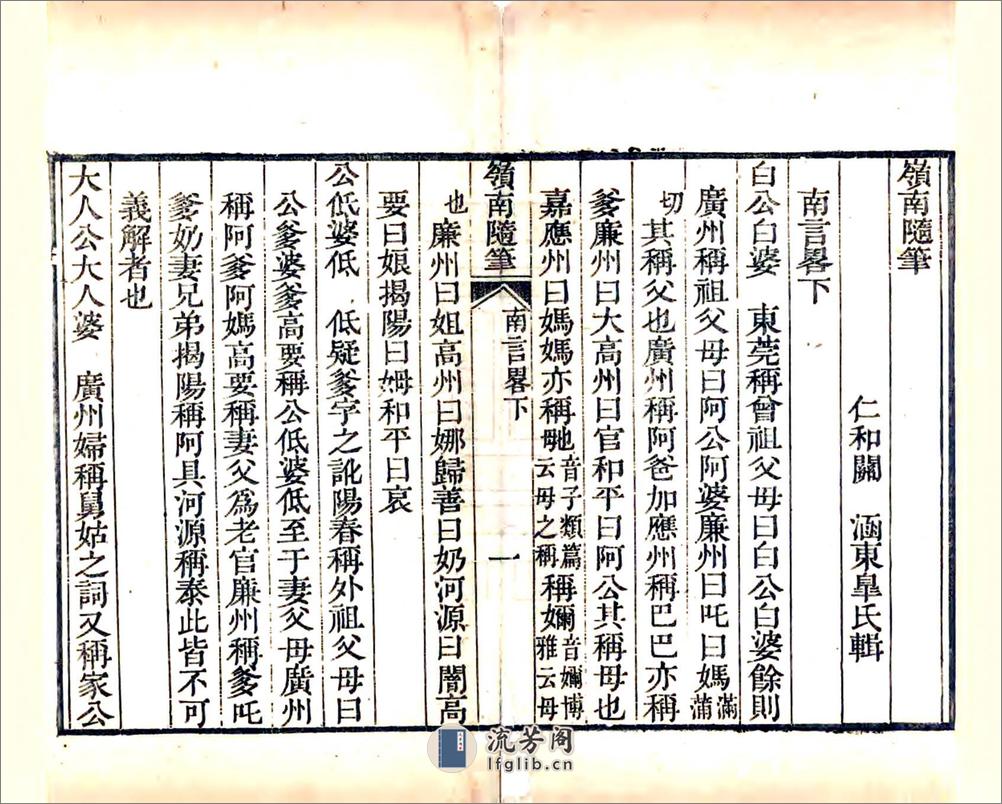 嶺南隨筆
仁和關　涵東臯氏輯
南言畧下
白公白婆　東莞稱曾祖父母曰白公白婆餘則
廣州稱祖父母曰阿公阿婆廉州曰吒曰媽滿蒲
切其稱父也廣州稱阿爸加應州稱巴巴亦稱
爹廉州曰大高州曰官和平曰阿公其稱母也
嘉應州曰媽媽亦稱毑音子類篇云母之稱稱妳音嬭博雅云母
嶺南隨筆　南言畧下　一
也　廉州曰姐高州曰娜歸善曰奶河源曰闇高
要曰娘揭陽曰姆和平曰哀
公低婆低　低疑爹字之訛陽春稱外祖父母曰
公爹婆爹高要稱公低婆低至于妻父母廣州
稱阿爹阿媽高要稱妻父爲老官廉州稱爹吒
爹奶妻兄弟揭陽稱阿具河源稱泰此皆不可
義解者也
大人公大人婆　廣州婦稱舅姑之詞又稱家公
流芳阁
lfglib.cn